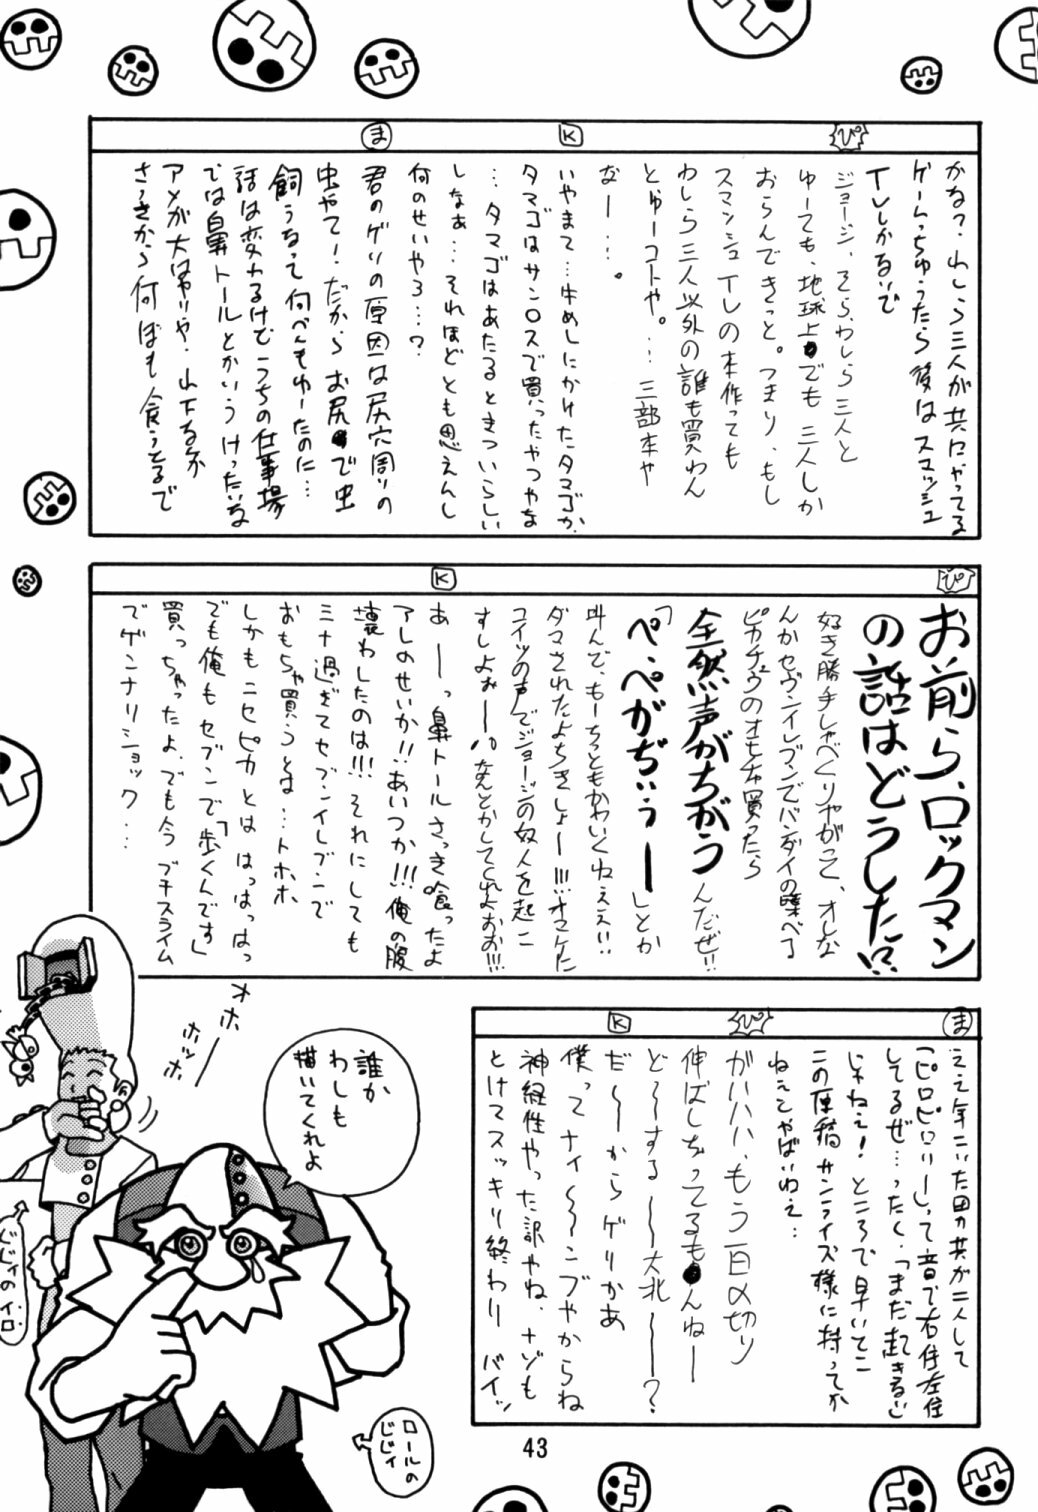 ぴ
K
ま
かな?。わしら三人が共にやってる
ゲームっちゅうたら後はスマッシュ
TVしかないで
ジョージ、そら、わしら三人と
ゆーても、地球上でも三人しか
おらんできっと。つまり、もし
スマッシュTVの本作っても
わしら三人以外の誰も買わん
とゆーコトや。… 三部本や
なー…。
いやまて…牛めしにかけたタマゴか、
タマゴはサンロスで買ったやつやな
…タマゴはあたるときついらしい
しなぁ…それほどとも思えんし
何のせいやろ…?
君のゲリの原因は尻穴周りの
虫やて!だから、お尻で虫
飼うなって何べんもゆーたのに…
話は変わるけど、うちの仕事場
では鼻トールとかいうけったいな
アメが大はやりや、山下るか
さっきから何ぼも食うてるで
ぴ
K
お前ら、ロックマン
の話はどうした!?
好き勝手しゃべくりやがって、オレな
んかセヴンイレブンでバンダイの喋べる
ピカチュウのオモチャ買ったら
全然声がちがう んだぜ!!
「ぺ・ぺがぢぃぅー」とか
叫んで、もーちっともかわいくねぇぇ!!
ダマされたよちきしょー!!!オマケに
コイツの声でジョージの奴人を起こ
すしよぉー!!なんとかしてくれよおお!!!
あーーっ鼻トールさっき喰ったよ
アレのせいか!!あいつか!!!俺の腹
壊わしたのは!!!それにしても
ミナ過ぎてセブンイレブンで
おもちゃ買うとは…トホホ
しかもニセピカとは はっはっはっ
でも俺もセブンで「歩くんです」
買っちゃったよ、でも今プチスライム
でゲンナリショック…
ま
ぴ
K
ええ年こいた田力共が二人して
「ピロピロリー」って音で右往左往
してるぜ…ったく、「まだ起きるな」
じゃねェ!ところで早いとこ
この原稿サンライズ様に持ってか
ねえとやばいねえ…
がハハハ、もう一日〆切り
伸ばしちってるもんねー
ど〜〜する〜〜大北〜〜?
だ〜〜からゲリかあ
僕ってナイ〜〜ンブやからね
神経性やった訳やね、ナゾも
とけてスッキリ終わり バイッ
オホーー
ホッホ
誰か
わしも
描いてくれよ
じじィのイロ
ロールの
じじィ
43